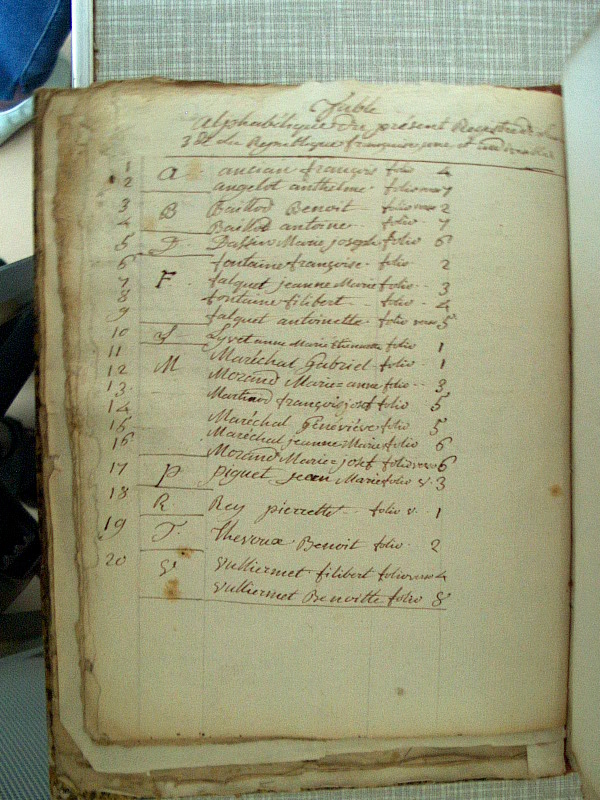 Table
alphabétique du présent Registre de
3 De la République françoise une et indivisible
1 A ancian françois folio 4
2 angelot anthelme folio verso 7
3 B Baillod Benoit folio verso 2
4 Baillod antoine folio 7
5 D. Daffin Marie joseph folio 6
6 fontaine françoise folio 2
7 F falquet jeanne Marie folio 3
8 fontaine filibert folio 4
9 falquet antoinette folio verso 5
10 L Lyvet anne Marie Etiennette folio 1
11 Maréchal Gabriel folio 1
12 M Morand Marie=anne folio 3
13 Martinod françois josef folio 5
14 Maréchal Géneviéve folio 5
15 Maréchal jeanne Marie folio 6
16 Morand Marie=josef folio verso 6
17 P piguet jean Marie folio v. 3
18 R. Rey pierrette folio v. 1
19 T. thevoux Benoit folio 2
20 V vulliermet filibert folio verso 4
vulliermet Benoitte folio 8